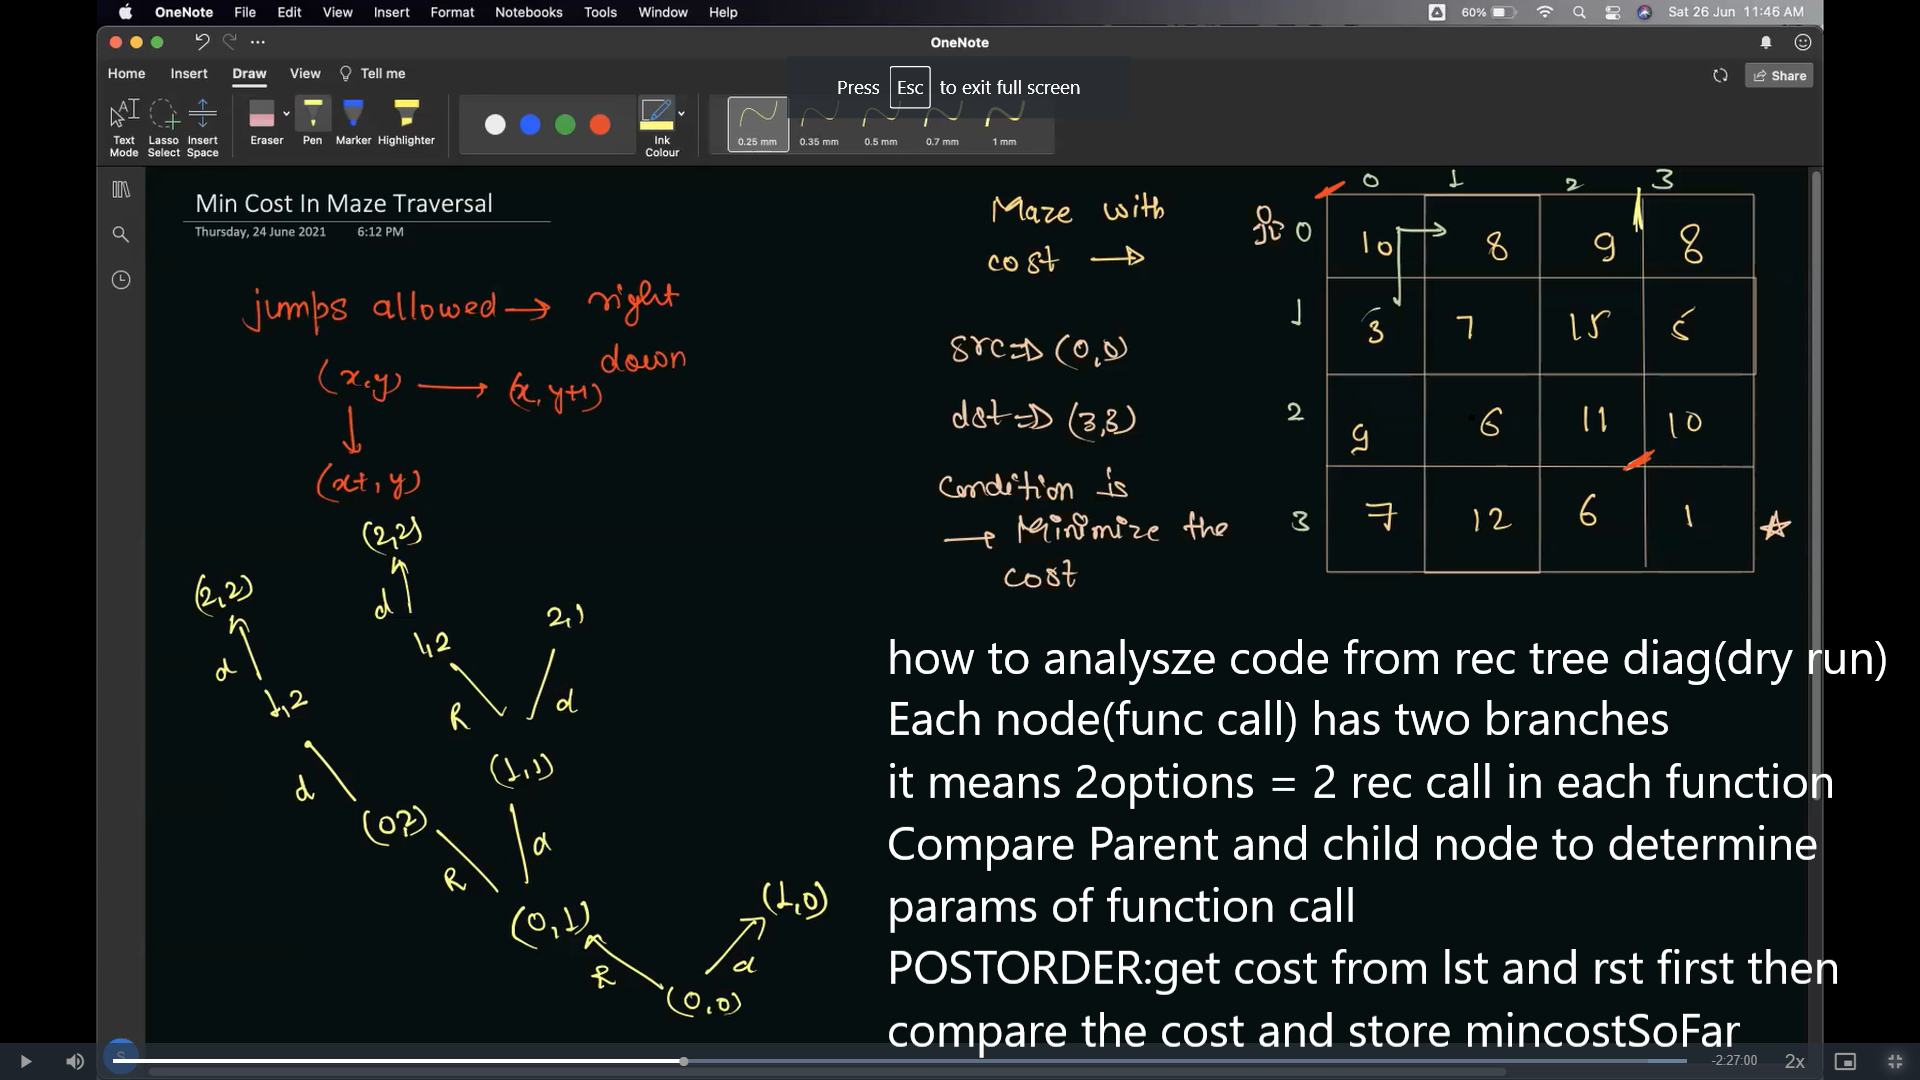 OneNote File Edit View Insert Format Notebooks Tools Window Help 60% Sat 26 Jun 11:46 AM
OneNote
Home Insert Draw View Tell me Share
Press Esc to exit full screen
Text Mode Lasso Select Insert Space Eraser Pen Marker Highlighter Ink Colour 0.25 mm 0.35 mm 0.5 mm 0.7 mm 1 mm
Min Cost In Maze Traversal
Thursday, 24 June 2021 6:12 PM
jumps allowed → right
down
(x,y) → (x, y+1)
(x+, y)
Maze with
cost →
src => (0,0)
dst => (3,3)
Condition is
→ Minimize the
cost
0 1 2 3
0 10 8 9 8
1 3 7 15 5
2 9 6 11 10
3 7 12 6 1
(2,2)
(2,2) d
1,2 2,1
d
1,2 R d
(1,1)
d
(0,2) d
R
(0,1) (1,0)
R d
(0,0)
how to analysze code from rec tree diag(dry run)
Each node(func call) has two branches
it means 2options = 2 rec call in each function
Compare Parent and child node to determine
params of function call
POSTORDER:get cost from lst and rst first then
compare the cost and store mincostSoFar
S
-2:27:00 2x